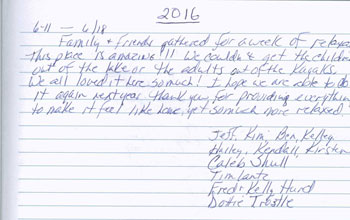 2016
6-11 — 6/18
Family & Friends gathered for a week of relaxa
This place is amazing!! We couldn't get the children
out of the lake or the adults out of the Kayaks.
We all loved it here so much! I hope we are able to do
it again next year. Thank you for providing everything
to make it feel like home, yet so much more relaxed.
Jeff, Kim, Ben, Kelley,
Hailey, Kendall, Kirsten
Caleb Shull
Tim Lantz
Fred & Kelly Hurd
Dottie Trostle